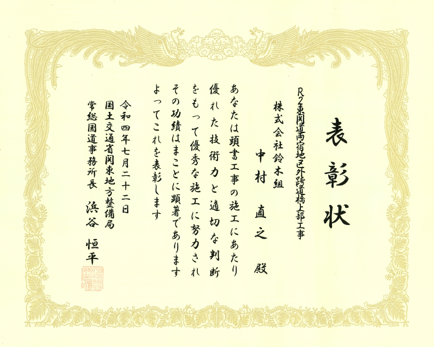 表彰状
R2東関道両宿地区外跨道橋上部工事
株式会社鈴木組
中村 直之 殿
あなたは頭書工事の施工にあたり
優れた技術力と適切な判断
をもって優秀な施工に努力され
その功績はまことに顕著であります
よってこれを表彰します
令和四年七月二十二日
国土交通省関東地方整備局
常総国道事務所長 浜谷 恒平